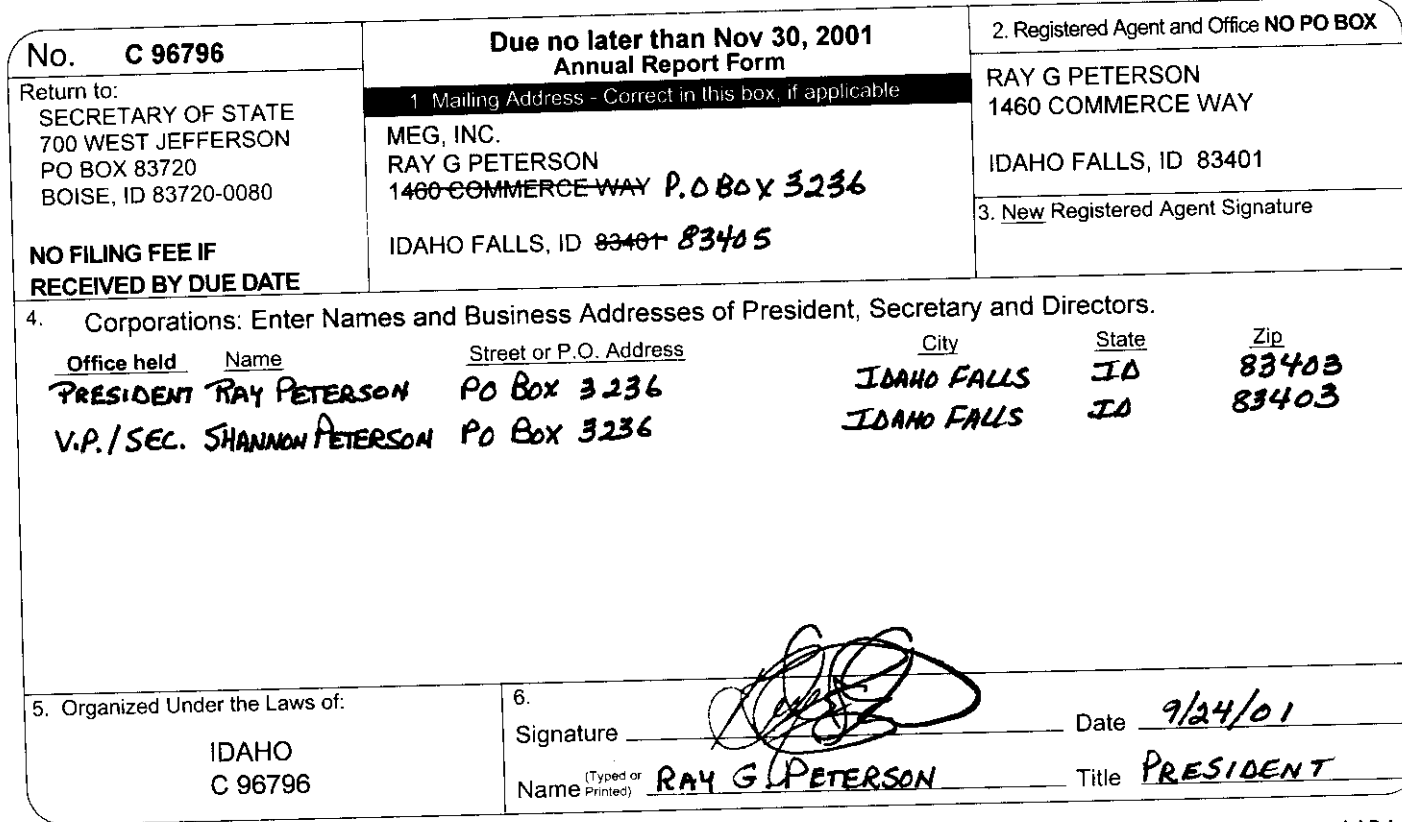 No. C 96796
Return to:
SECRETARY OF STATE
700 WEST JEFFERSON
PO BOX 83720
BOISE, ID 83720-0080
NO FILING FEE IF
RECEIVED BY DUE DATE
Due no later than Nov 30, 2001
Annual Report Form
1 Mailing Address - Correct in this box, if applicable
MEG, INC.
RAY G PETERSON
1460 COMMERCE WAY P.O BOX 3236
IDAHO FALLS, ID 83401 83405
2. Registered Agent and Office NO PO BOX
RAY G PETERSON
1460 COMMERCE WAY
IDAHO FALLS, ID 83401
3. New Registered Agent Signature
4. Corporations: Enter Names and Business Addresses of President, Secretary and Directors.
Office held Name Street or P.O. Address City State Zip
PRESIDENT RAY PETERSON PO BOX 3236 IDAHO FALLS ID 83403
V.P./SEC. SHANNON PETERSON PO BOX 3236 IDAHO FALLS ID 83403
5. Organized Under the Laws of:
IDAHO
C 96796
6.
Signature Date 9/24/01
Name (Typed or Printed) RAY G PETERSON Title PRESIDENT